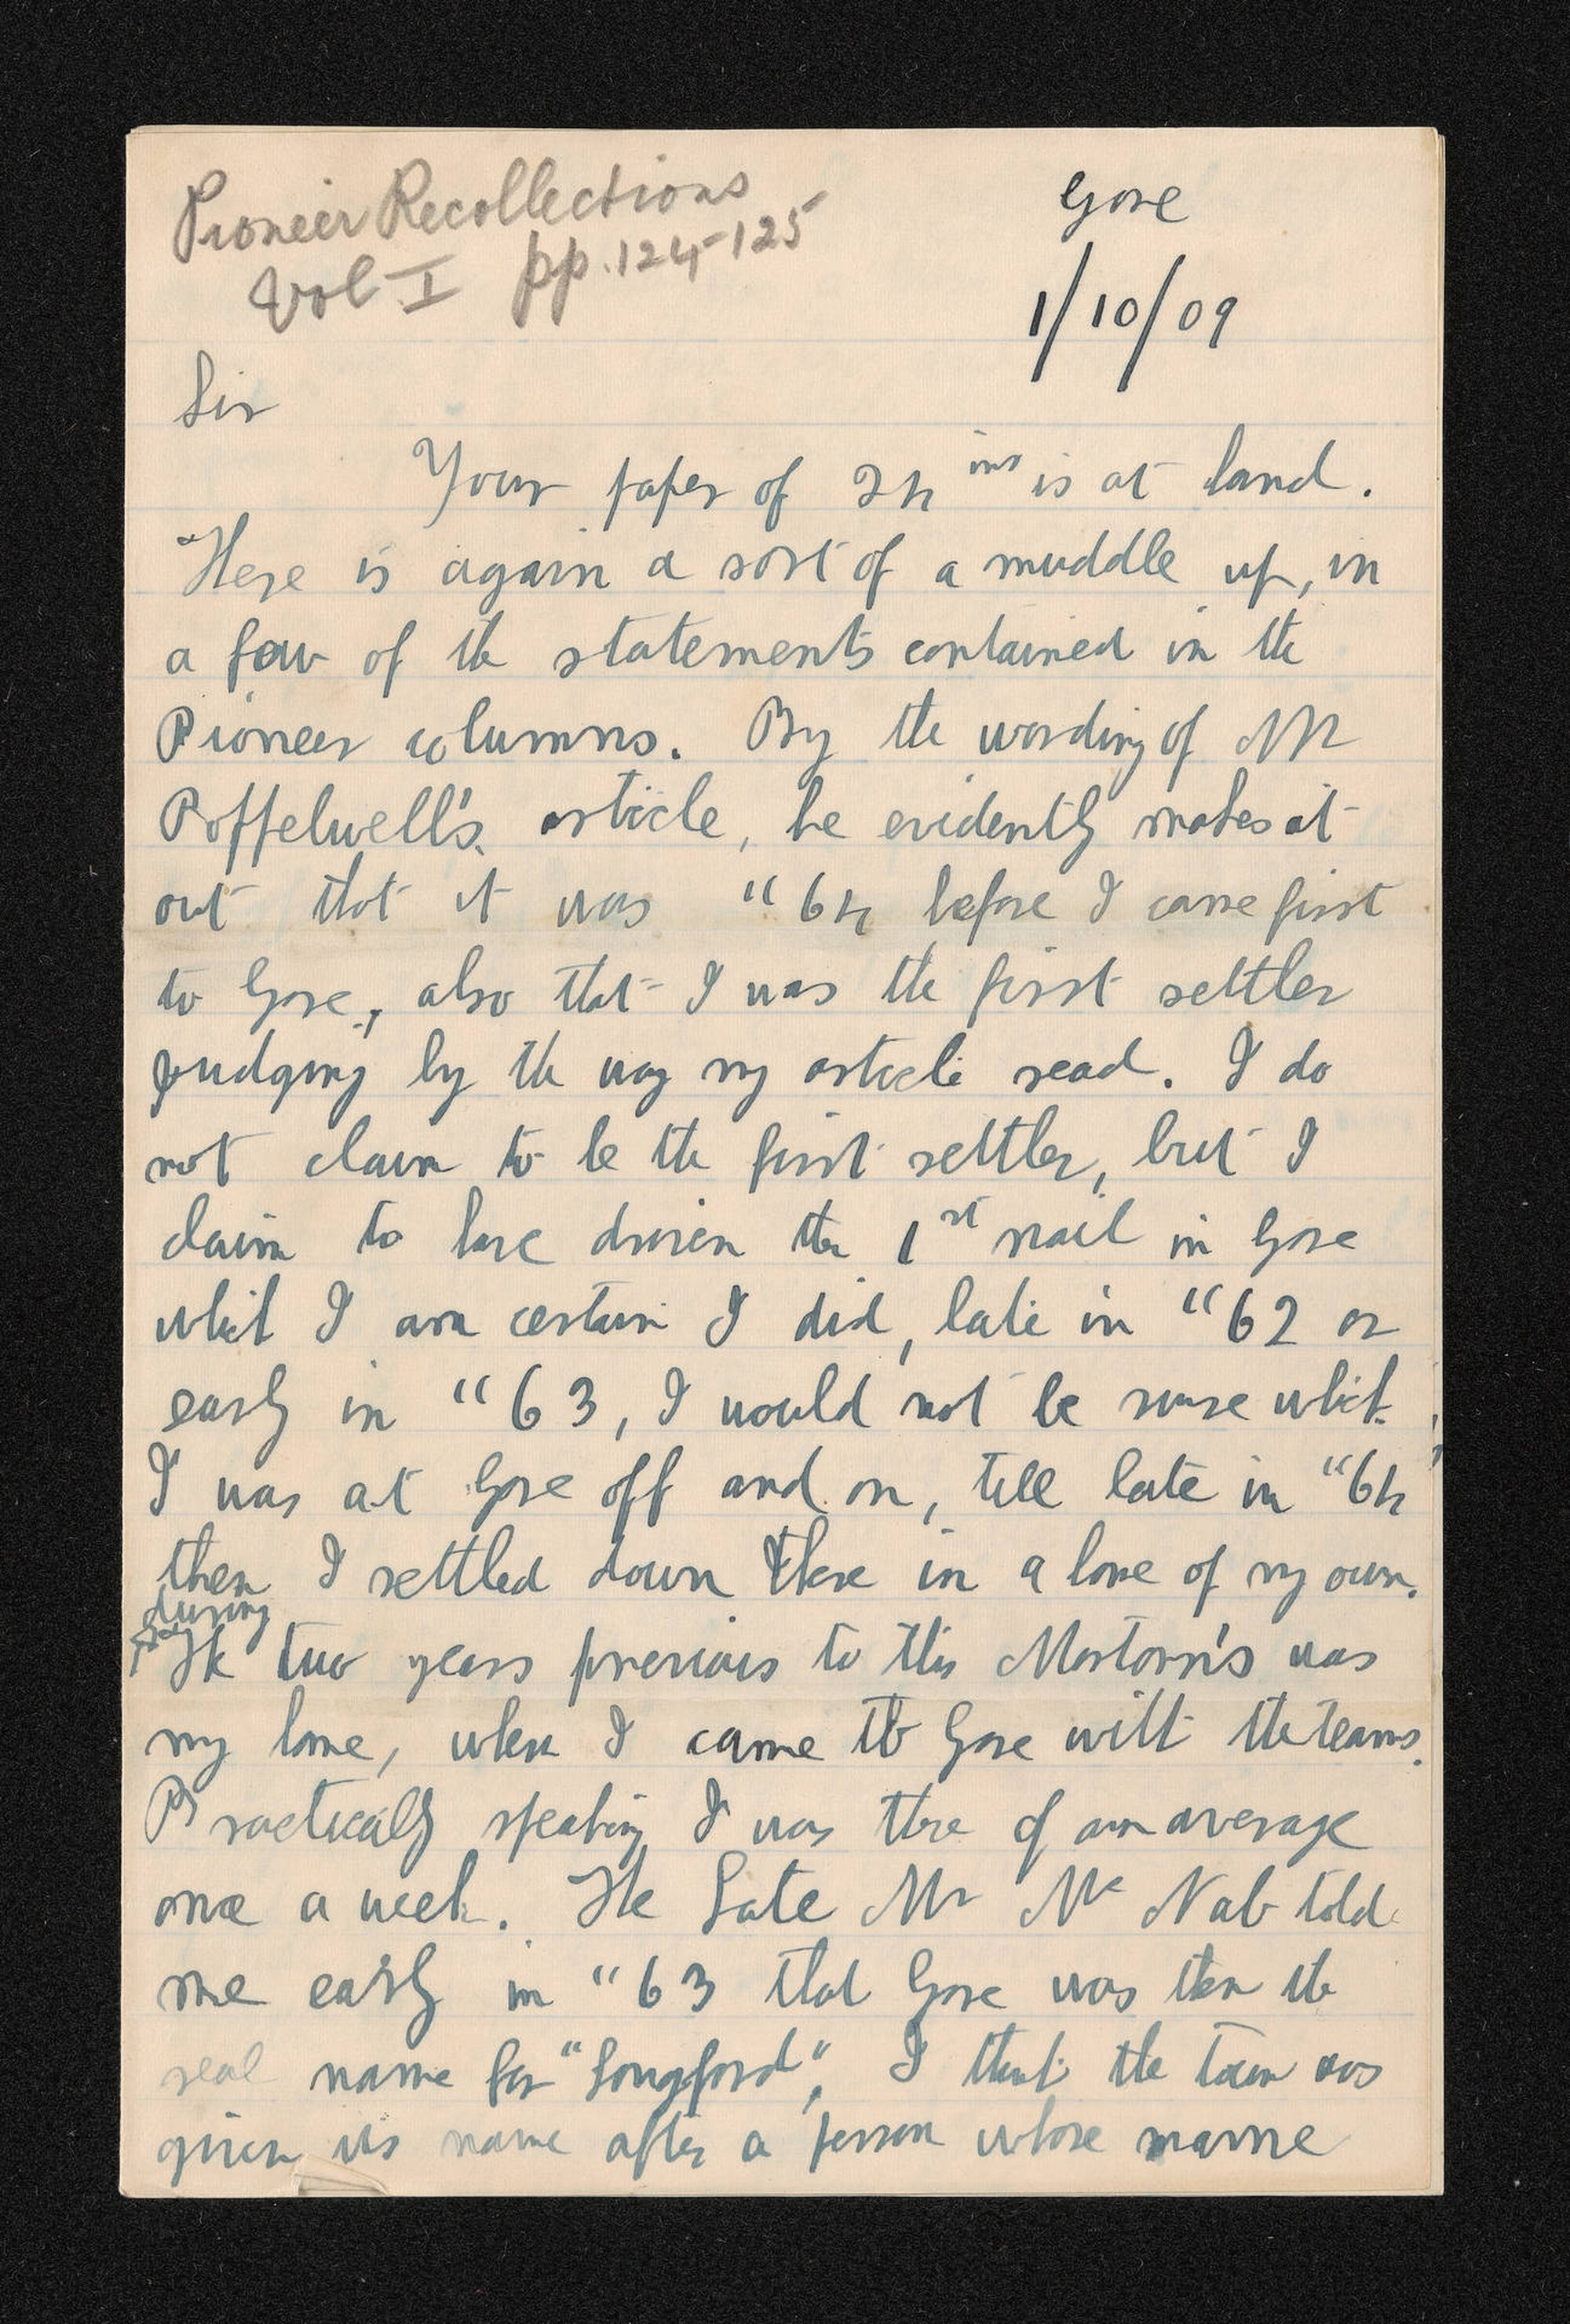 Pioneer Recollections
Vol I pp. 124-125
Gore
1/10/09
Sir
Your paper of 24 ins is at hand.
Here is again a sort of a muddle up, in
a few of the statements contained in the
Pioneer columns. By the wording of Mr
Poppelwell's article, he evidently makes it
out that it was "64 before I came first
to Gore, also that I was the first settler
judging by the way my article read. I do
not claim to be the first settler, but I
claim to have driven the 1st nail in Gore
which I am certain I did, late in "62 or
early in "63, I would not be sure which.
I was at Gore off and on, till late in "64
then I settled down there in a home of my own.
during
The two years previous to this Morton's was
my home, when I came to Gore with the teams.
Practically speaking I was there of an average
once a week. The Late Mr Mc Nab told
me early in "63 that Gore was then the
real name for "Longford", I think the town was
given its name after a person whose name